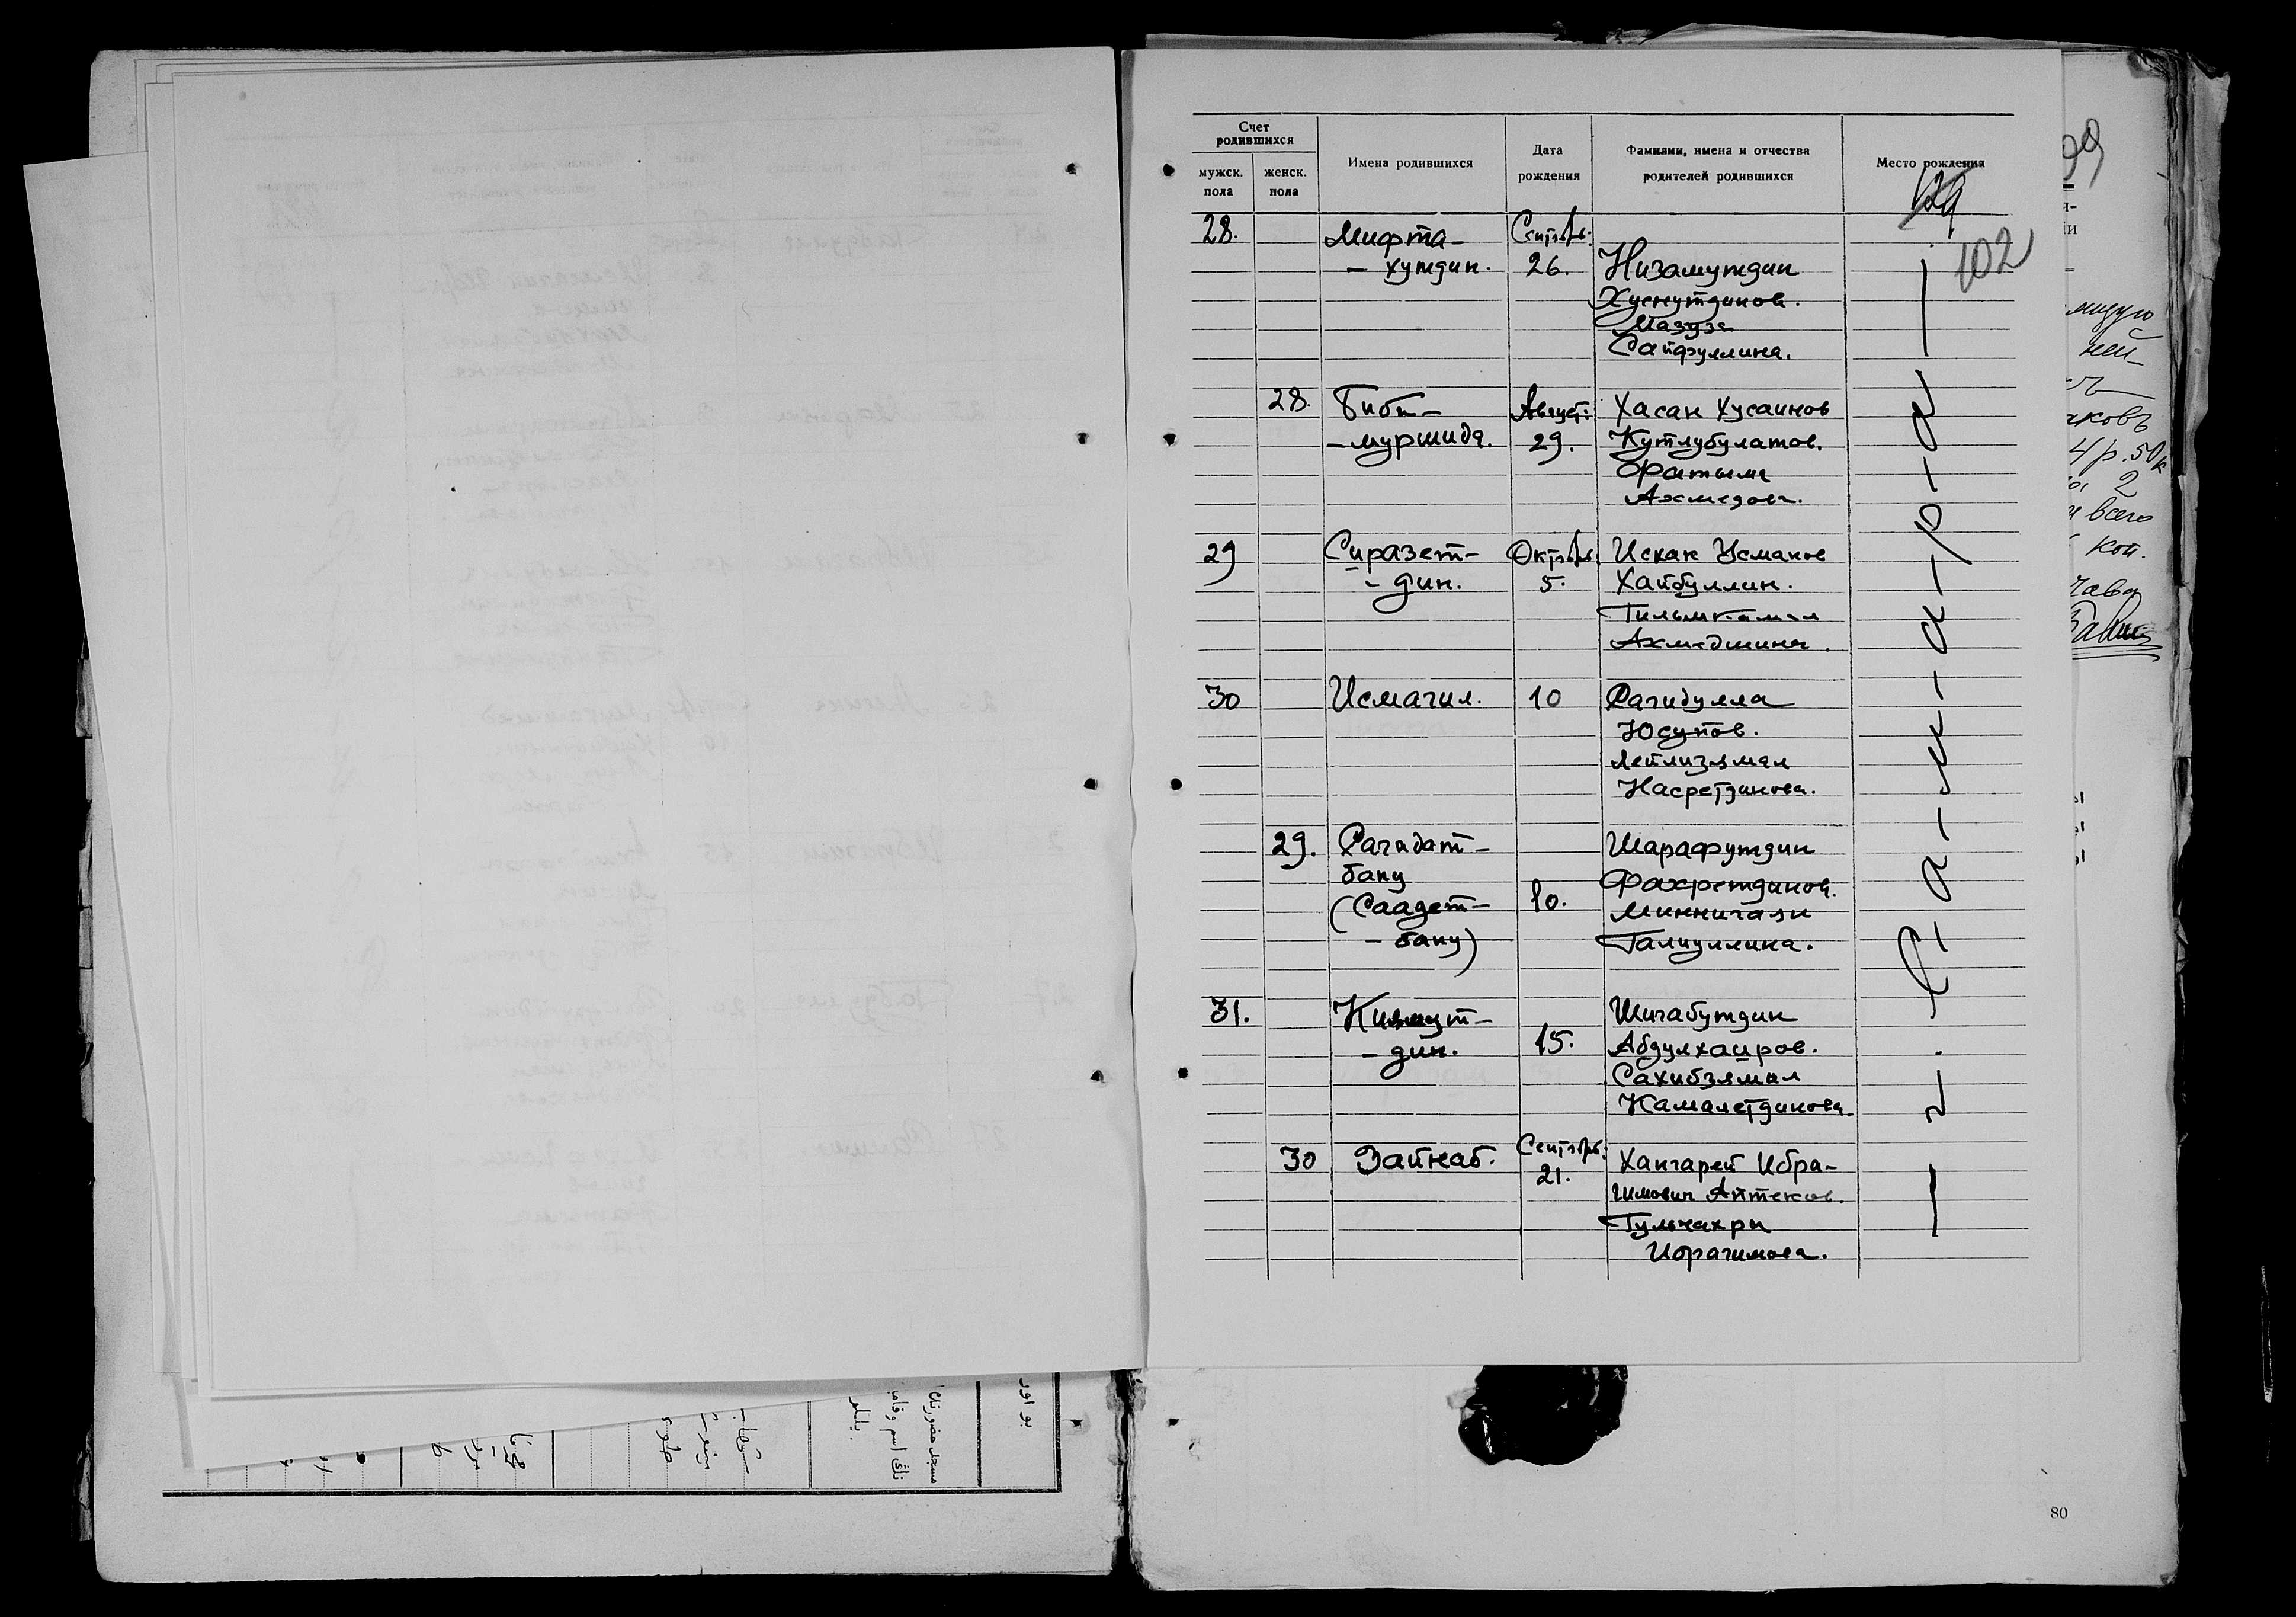 Счет
родившихся
мужск.
пола
женск.
пола
Имена родившихся
Дата
рождения
Фамилии, имена и отчества
родителей родившихся
Место рождения
102
28.
Мифта-
- хутдин.
Сентябр:
26.
Низамутдин
Хуснутдинов.
Сайфуллина.
28.
Биби-
-муршида.
Август:
29.
Хасан Хусаинов
Кутлубулатов.
Фатыма
Ахмедова.
29
Сиразет-
- дин.
Октябр:
5.
Исхак Усманов
Хайбуллин.
Ахмедшина.
30
Исмагил.
10
Рагибулла
Юсупов.
Лейлизямал
Насретдинова.
29.
Рагидат-
бану
(Саадет-
- бану)
10.
Шарафутдин
Фахретдинов.
Миннигази
Галиуллина.
31.
- дин.
15.
Шигабутдин
Абдулхаиров.
Сахибзямал
Камалетдинова.
30
Зайнаб.
Сентябр:
21.
Хангарей Ибра-
гимович Аптеков.
Гульчахры
Ибрагимова.
С-а-м-а-р-а
99
ней
аковъ
4 р. 50 к
2
и всего
коп.
80